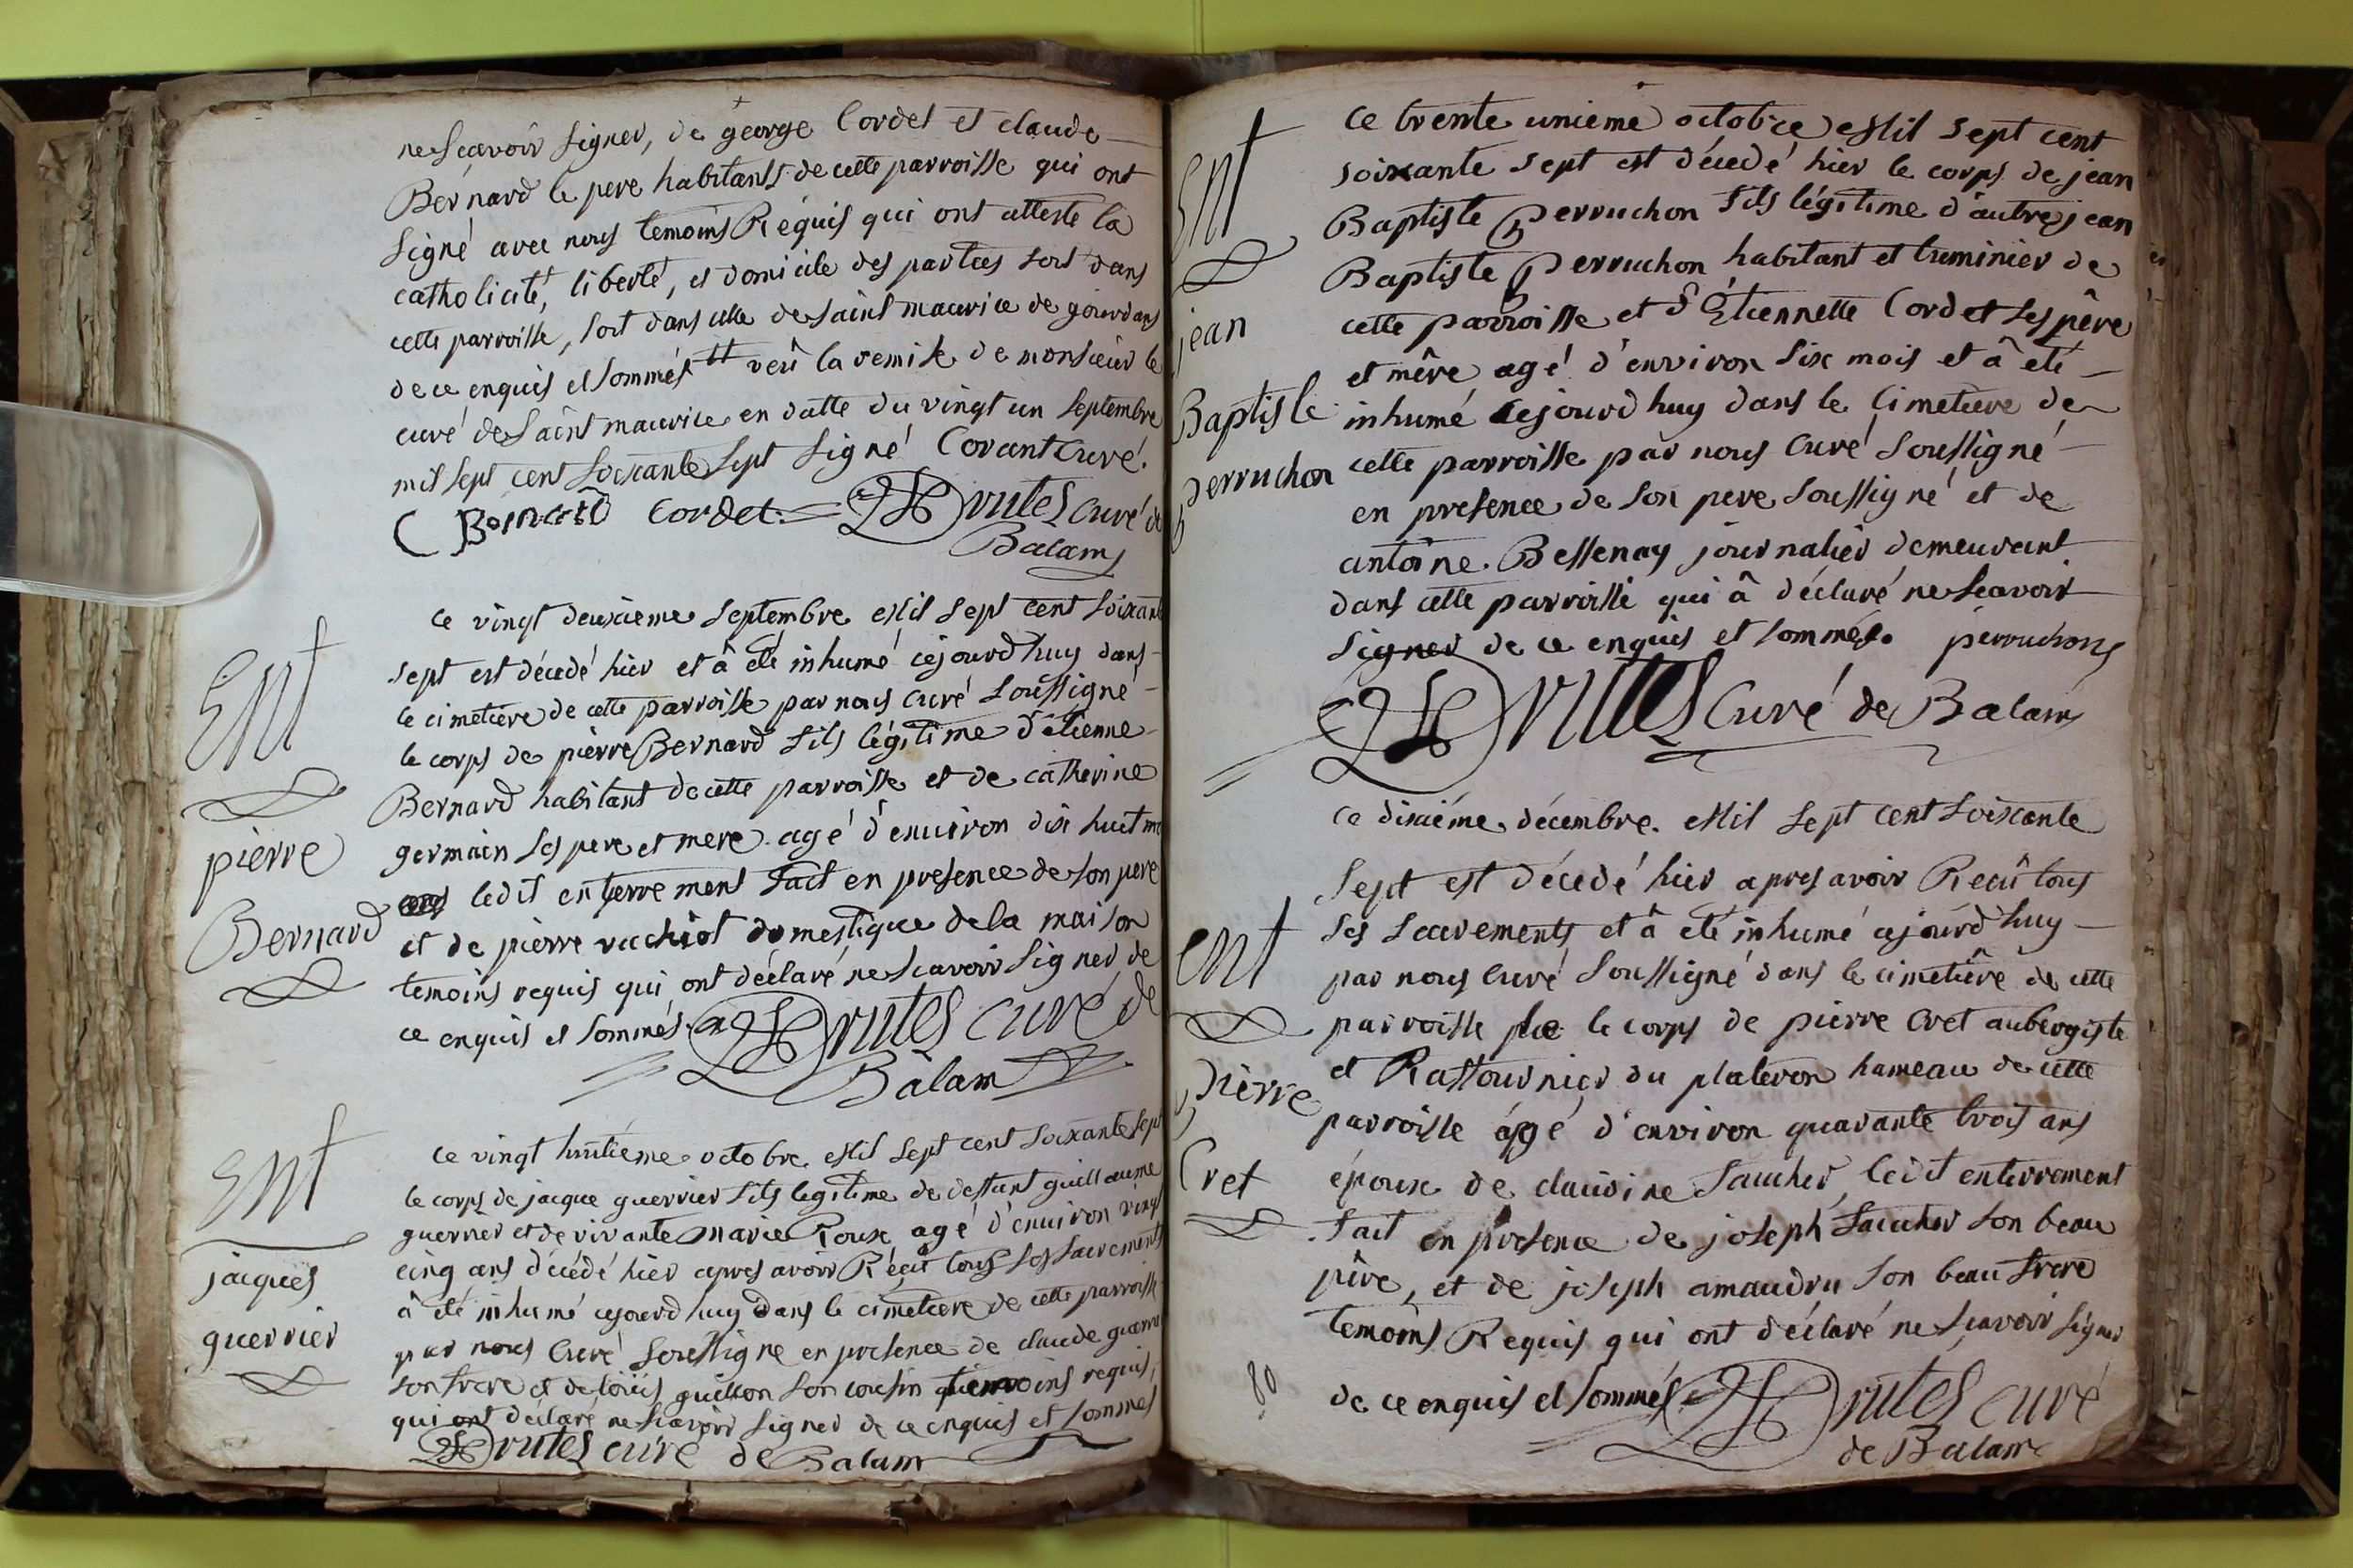 ne scavoir signer, de george Cordet et claude
Bernard le pere habitants de cette parroisse qui ont
signé avec nous temoins Requis qui ont atteste la
catholicité, liberté, et domicile des parties soit dans
cette parroisse, soit dans celle de saint maurice de gourdans
de ce enquis et sommés et veû la remise de monsieur le
curé de saint maurice en datte du vingt un septembre
mil sept cent soixante sept signé Corant curé.
C Bernard Cordet. Drutes curé de
Balam
ce vingt deuxieme septembre mil sept cent soixante
sept est décedé hier et â été inhumé cejourd huy dans
le cimetiere de cette parroisse par nous curé soussigné
le corps de pierre Bernard fils légitime d'étienne
Bernard habitant de cette parroisse et de catherine
germain ses pere et mere agé d'environ dix huit
ledit enterrement fait en presence de son pere
et de pierre vachiot domestique de la maison
temoins requis qui ont déclaré ne scavoir signer de
ce enquis et sommés. Drutes curé de
Balam
Ent
pierre
Bernard
ce vingt huitieme octobre mil sept cent soixante sept
le corps de jacque guerrier fils legitime de deffunt guillaume
guerrier et de vivante marie Roux agé d'environ vingt
cinq ans décédé hier apres avoir Reçû tous ses sacrements
â été inhumé cejourd huy dans le cimetiere de cette parroisse
par nous Curé soussigne en presence de claude
son frere et de loüis guillon son cousin temoins requis,
qui ont déclaré ne scavoir signer de ce enquis et sommés
Drutes curé de Balam
Ent
jacques
guerrier
Ce trente unieme octobre mil sept cent
soixante sept est décedé hier le corps de jean
Baptiste perruchon fils légitime d'autre jean
Baptiste perruchon habitant et luminier de
cette parroisse et d'Etiennette Cordet ses pêre
et mêre agé d'environ six mois et â eté
inhumé cejourd huy dans le Cimetiere de
cette parroisse par nous Curé soussigné
en presence de son pere soussigné et de
antoine Bessenay journalier demeurant
dans cette parroisse qui â déclaré ne scavoir
signer de ce enquis et sommés. perruchons
Drutes Curé de Balam
Ent
jean
Baptiste
perruchon
ce dixiéme décembre mil sept cent soixante
sept est décedé hier apres avoir Recû tous
ses sacrements et â eté inhumé cejourd huy
par nous Curé soussigné dans le cimetiêre de cette
parroisse le corps de pierre Cret aubergiste
et du plateron hameau de cette
parroisse âgé d'environ quarante trois ans
époux de claudine saucher, ledit enterrement
fait en presence de joseph saucher son beau
pêre, et de joseph amaudru son beau frere
temoins Requis qui ont déclaré ne scavoir signer
de ce enquis et sommés. Drutes curé
de Balam
ent
pierre
Cret
80